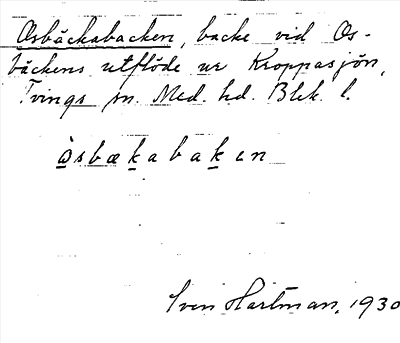 Osbäckabacken, backe vid Os-
bäckens utflöde ur Kroppasjön,
Tvings sn. Med. hd. Blek. l.
òsbækabaken
Sven Hartman, 1930